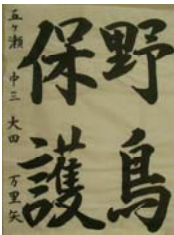 野鳥
保護
五ヶ瀬 中三 大田 万里矢